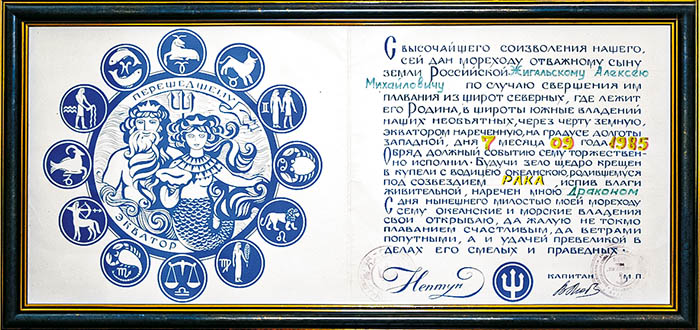 ПЕРЕШЕДШЕМУ
ЭКВАТОР
С ВЫСОЧАЙШЕГО СОИЗВОЛЕНИЯ НАШЕГО,
СЕЙ ДАН МОРЕХОДУ ОТВАЖНОМУ СЫНУ
ЗЕМЛИ РОССИЙСКОЙ Жигальскому Алексею
Михайловичу ПО СЛУЧАЮ СВЕРШЕНИЯ ИМ
ПЛАВАНИЯ ИЗ ШИРОТ СЕВЕРНЫХ, ГДЕ ЛЕЖИТ
ЕГО РОДИНА, В ШИРОТЫ ЮЖНЫЕ ВЛАДЕНИЙ
НАШИХ НЕОБЪЯТНЫХ, ЧЕРЕЗ ЧЕРТУ ЗЕМНУЮ,
ЭКВАТОРОМ НАРЕЧЕННУЮ, НА ГРАДУСЕ ДОЛГОТЫ
ЗАПАДНОЙ, ДНЯ 7 МЕСЯЦА 09 ГОДА 1985
ОБРЯД ДОЛЖНЫЙ СОБЫТИЮ СЕМУ ТОРЖЕСТВЕН-
НО ИСПОЛНИЛ. БУДУЧИ ЗЕЛО ЩЕДРО КРЕЩЕН
В КУПЕЛИ С ВОДИЦЕЮ ОКЕАНСКОЮ, РОДИВШЕМУСЯ
ПОД СОЗВЕЗДИЕМ РАКА, ИСПИВ ВЛАГИ
ЖИВИТЕЛЬНОЙ, НАРЕЧЕН МНОЮ Драконом
С ДНЯ НЫНЕШНЕГО МИЛОСТЬЮ МОЕЙ МОРЕХОДУ
СЕМУ ОКЕАНСКИЕ И МОРСКИЕ ВЛАДЕНИЯ
СВОИ ОТКРЫВАЮ, ДА ЖАЛУЮ НЕ ТОКМО
ПЛАВАНИЕМ СЧАСТЛИВЫМ, ДА ВЕТРАМИ
ПОПУТНЫМИ, А И УДАЧЕЙ ПРЕВЕЛИКОЙ В
ДЕЛАХ ЕГО СМЕЛЫХ И ПРАВЕДНЫХ
Нептун
КАПИТАН М.П.